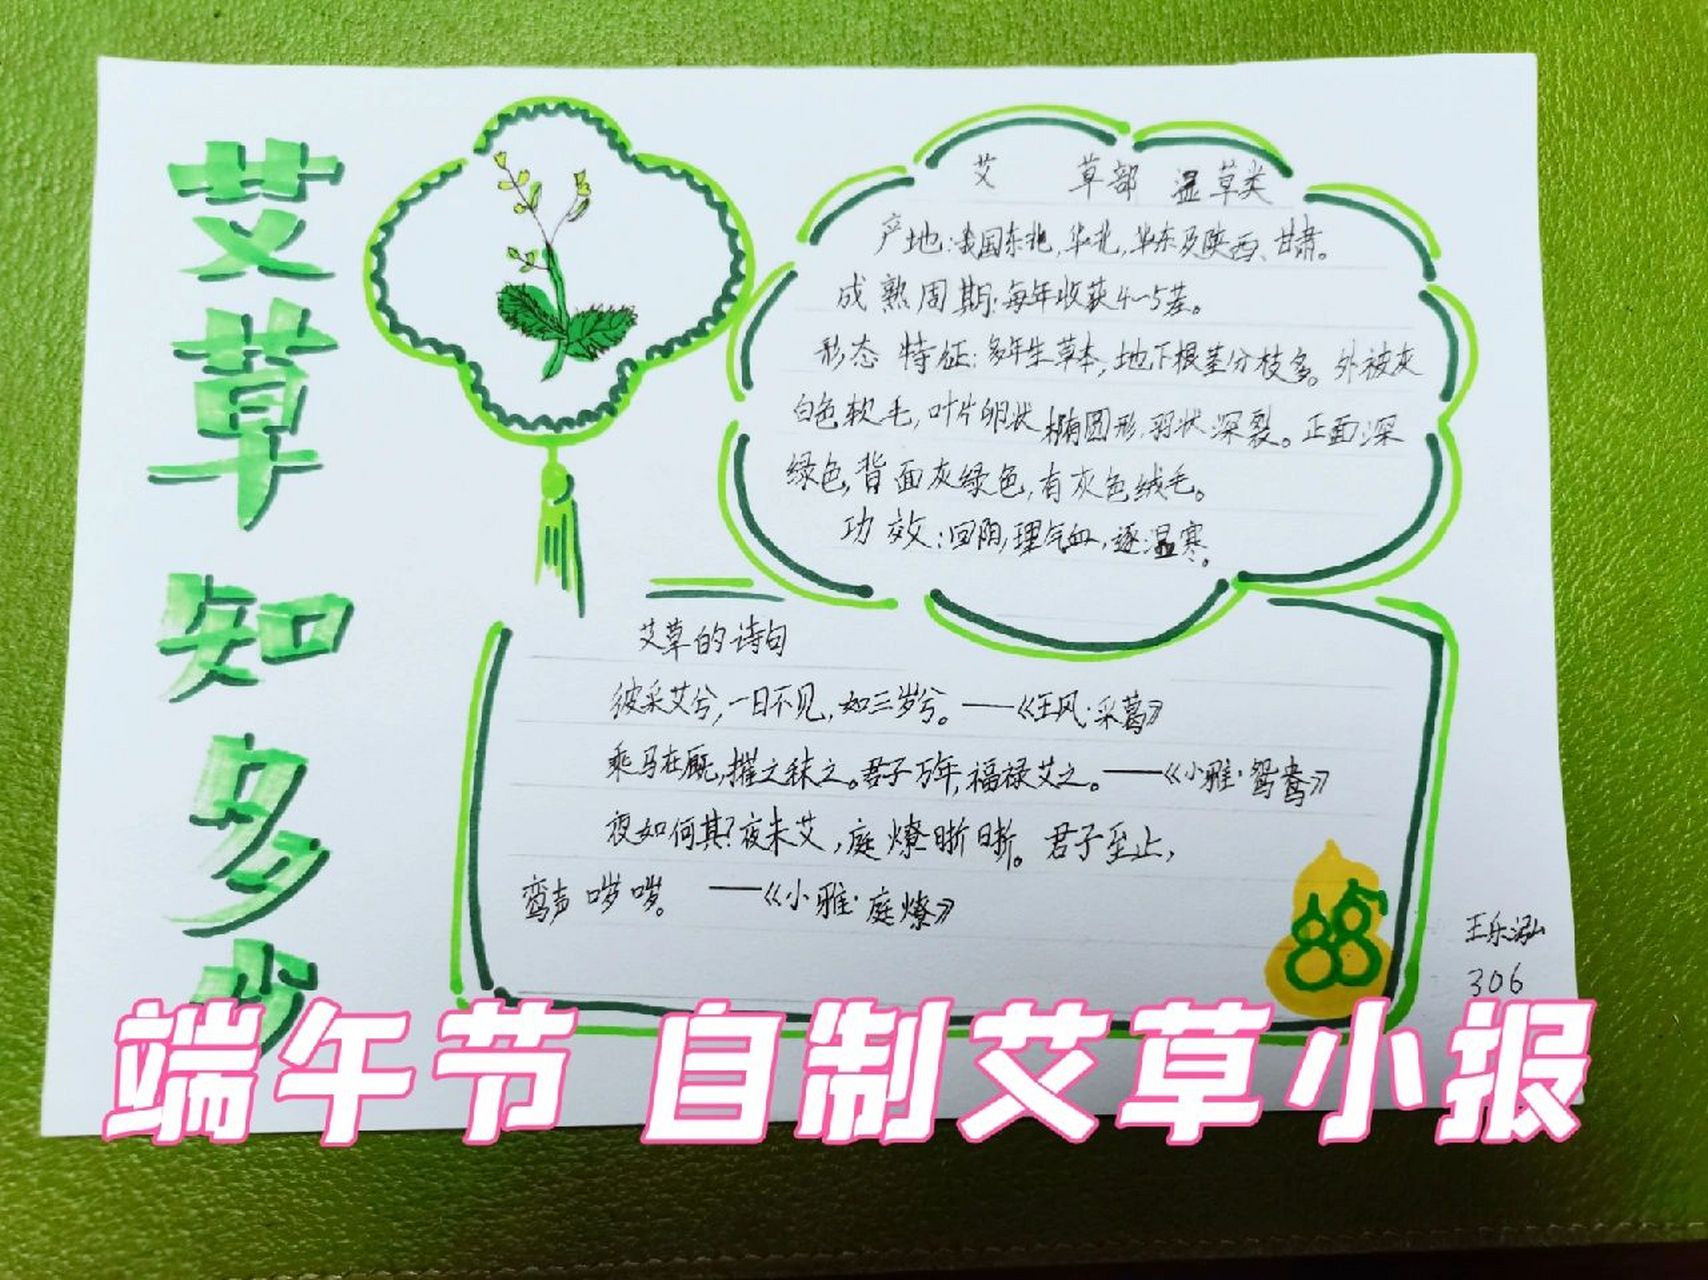 艾草知多少
艾 草部 湿草类
产地:我国东北,华北,华东及陕西、甘肃。
成熟周期:每年收获4~5茬。
形态 特征:多年生草本,地下根茎分枝多。外被灰
白色软毛,叶片卵状椭圆形,羽状深裂。正面深
绿色,背面灰绿色,有灰色绒毛。
功效:回阳,理气血,逐湿寒。
艾草的诗句
彼采艾兮,一日不见,如三岁兮。——《王风·采葛》
乘马在厩,摧之秣之。君子万年,福禄艾之。——《小雅·鸳鸯》
夜如何其?夜未艾,庭燎晣晣。君子至止,
鸾声哕哕。——《小雅·庭燎》
王乐泓
306
端午节 自制艾草小报